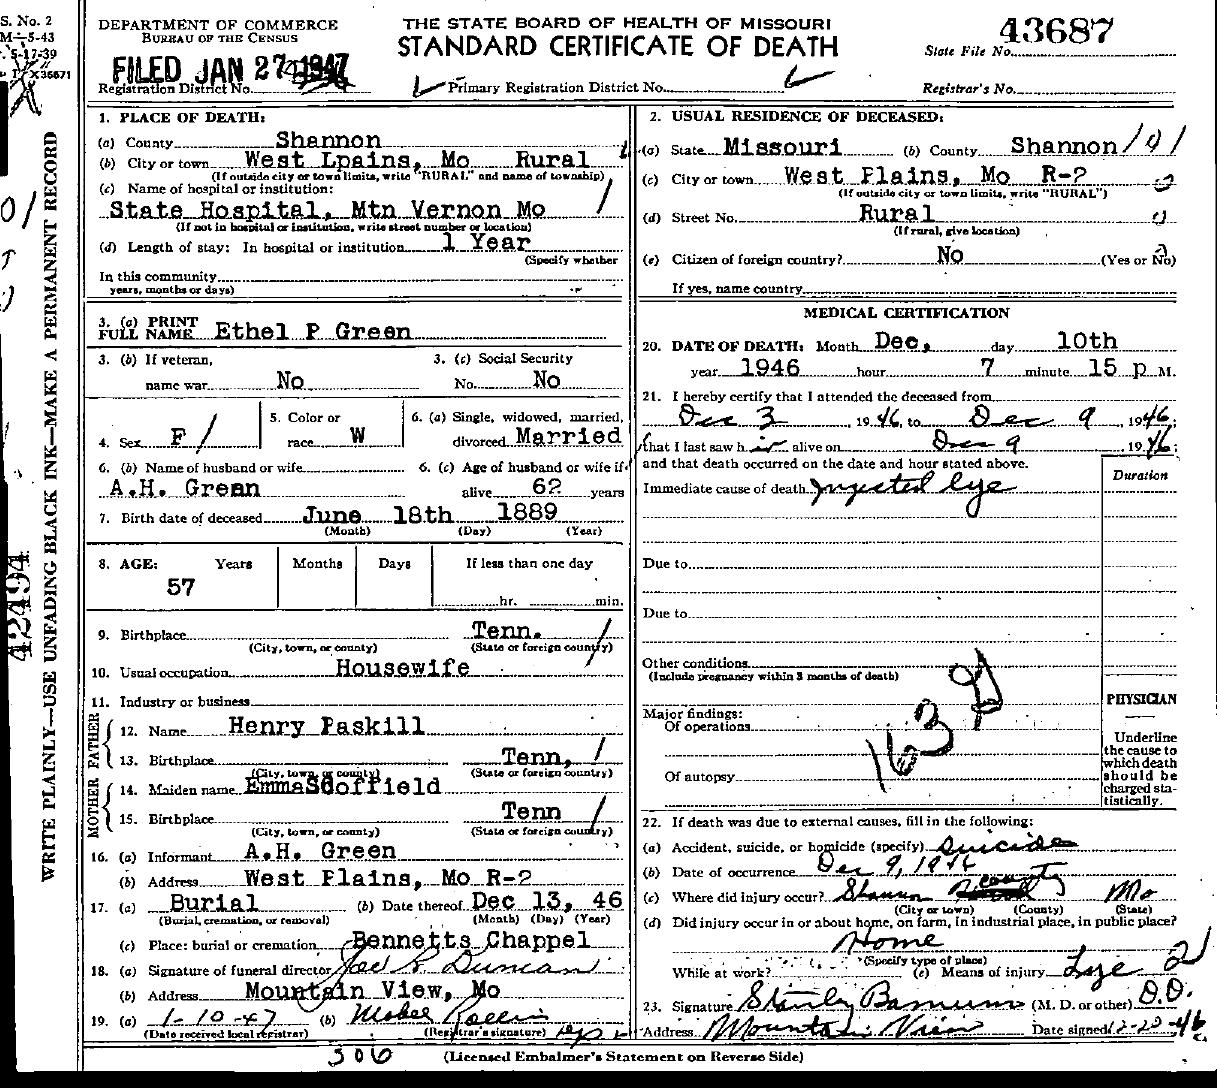 S. No. 2
M—5-43
5-17-39
X36671
DEPARTMENT OF COMMERCE
BUREAU OF THE CENSUS
THE STATE BOARD OF HEALTH OF MISSOURI
STANDARD CERTIFICATE OF DEATH
43687
State File No.
FILED JAN 27 1947
Registration District No.
Primary Registration District No.
Registrar's No.
WRITE PLAINLY—USE UNFADING BLACK INK—MAKE A PERMANENT RECORD
42494
1. PLACE OF DEATH:
(a) County Shannon
(b) City or town West Lpains, Mo Rural
(If outside city or town limits, write "RURAL" and name of township)
(c) Name of hospital or institution:
State Hospital, Mtn Vernon Mo
(If not in hospital or institution, write street number or location)
(d) Length of stay: In hospital or institution 1 Year
(Specify whether
In this community
years, months or days)
3. (a) PRINT
FULL NAME Ethel P Green
3. (b) If veteran,
name war No
3. (c) Social Security
No. No
4. Sex F
5. Color or
race W
6. (a) Single, widowed, married,
divorced Married
6. (b) Name of husband or wife
A.H. Green
6. (c) Age of husband or wife if
alive 62 years
7. Birth date of deceased June 18th 1889
(Month) (Day) (Year)
8. AGE: Years Months Days If less than one day
57
hr. min.
9. Birthplace Tenn.
(City, town, or county) (State or foreign country)
10. Usual occupation Housewife
11. Industry or business
FATHER
12. Name Henry Paskill
13. Birthplace Tenn,
(City, town, or county) (State or foreign country)
MOTHER
14. Maiden name EmmaScoffield
15. Birthplace Tenn
(City, town, or county) (State or foreign country)
16. (a) Informant A.H. Green
(b) Address West Plains, Mo R-2
17. (a) Burial (b) Date thereof Dec 13, 46
(Burial, cremation, or removal) (Month) (Day) (Year)
(c) Place: burial or cremation Bennetts Chappel
18. (a) Signature of funeral director Joe R. Duncan
(b) Address Mountain View, Mo
19. (a) 1-10-47 (b) Mabel Rollin
(Date received local registrar) (Registrar's signature)
306
(Licensed Embalmer's Statement on Reverse Side)
2. USUAL RESIDENCE OF DECEASED:
(a) State Missouri (b) County Shannon
(c) City or town West Plains, Mo R-2
(If outside city or town limits, write "RURAL")
(d) Street No. Rural
(If rural, give location)
(e) Citizen of foreign country? No (Yes or No)
If yes, name country
MEDICAL CERTIFICATION
20. DATE OF DEATH: Month Dec, day 10th
year 1946 hour 7 minute 15 p M.
21. I hereby certify that I attended the deceased from
Dec 3 1946, to Dec 9 1946;
that I last saw h alive on Dec 9 1946;
and that death occurred on the date and hour stated above.
Duration
Immediate cause of death Injested lye
Due to
Due to
Other conditions
(Include pregnancy within 3 months of death)
Major findings:
Of operations
Of autopsy
163
PHYSICIAN
Underline
the cause to
which death
should be
charged sta-
tistically.
22. If death was due to external causes, fill in the following:
(a) Accident, suicide, or homicide (specify) Suicide
(b) Date of occurrence Dec 9, 1946
(c) Where did injury occur? Shannon county Mo
(City or town) (County) (State)
(d) Did injury occur in or about home, on farm, in industrial place, in public place?
Home
(Specify type of place)
While at work? (e) Means of injury Lye
23. Signature Stanly Barnum (M. D. or other) D.O.
Address Mountain View Date signed 12-20-46